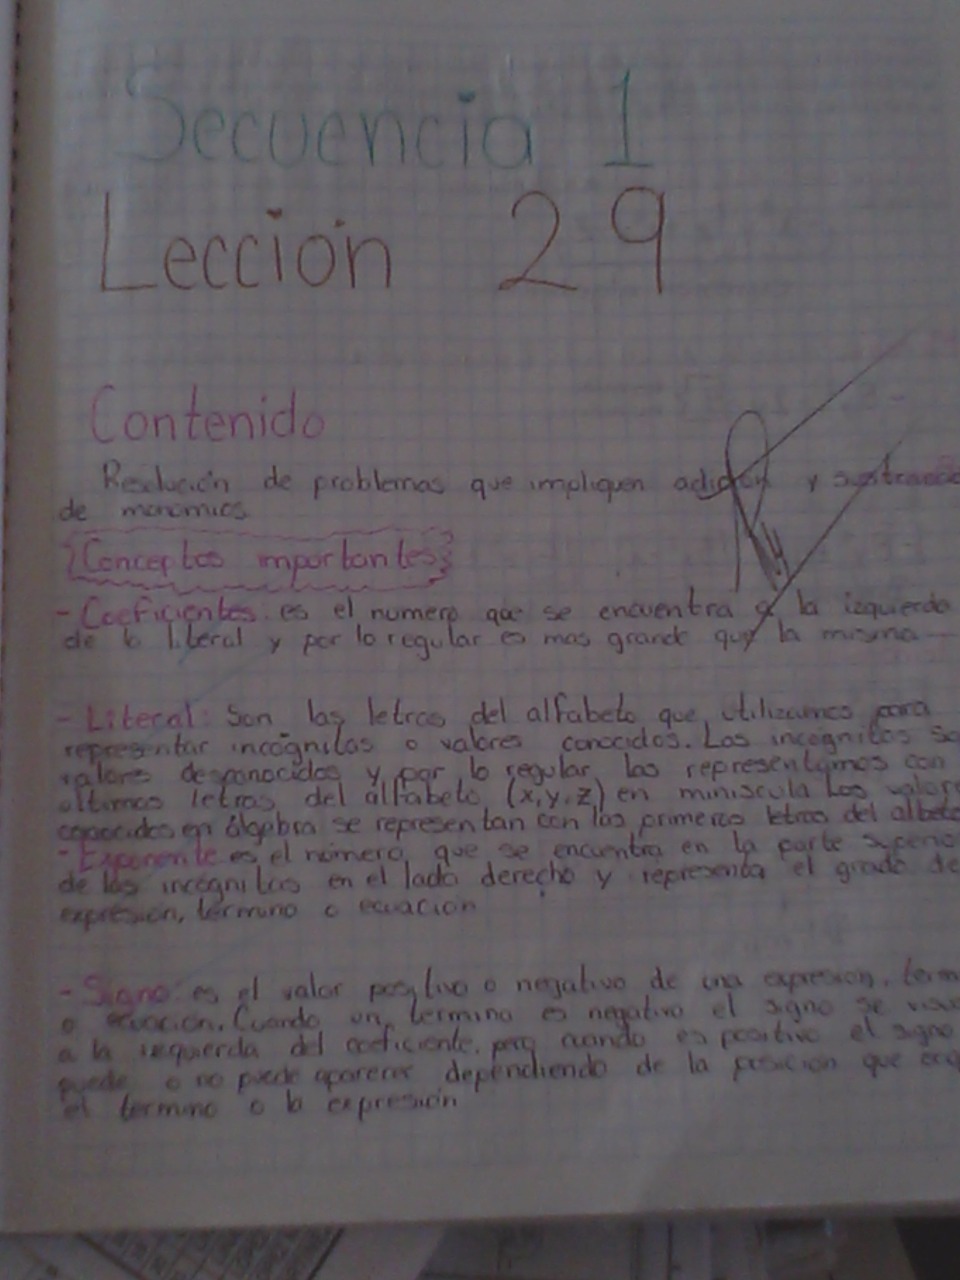 Secuencia 1
Lección 29
Contenido
Resolución de problemas que impliquen adición y sustracció
de monomios
Conceptos importantes
- Coeficientes: es el numero que se encuentra a la izquierda
de la literal y por lo regular es mas grande que la misma
- Literal: Son las letras del alfabeto que utilizamos para
representar incógnitas o valores conocidos. Las incognitas so
valores desconocidos y por lo regular las representamos con
ultimas letras del alfabeto (x,y,z) en miniscula Los valor
conocidos en álgebra se representan con las primeras letras del albeto
- Exponente es el número que se encuentra en la parte superio
de las incógnitas en el lado derecho y representa el grado de
expresión, término o ecuación
- Signo: es el valor positivo o negativo de una expresion, term
o ecuación. Cuando un termino es negativo el signo se
a la izquierda del coeficiente, pero cuando es positivo el signo
puede o no puede aparecer dependiendo de la posicion que
el termino o la expresión